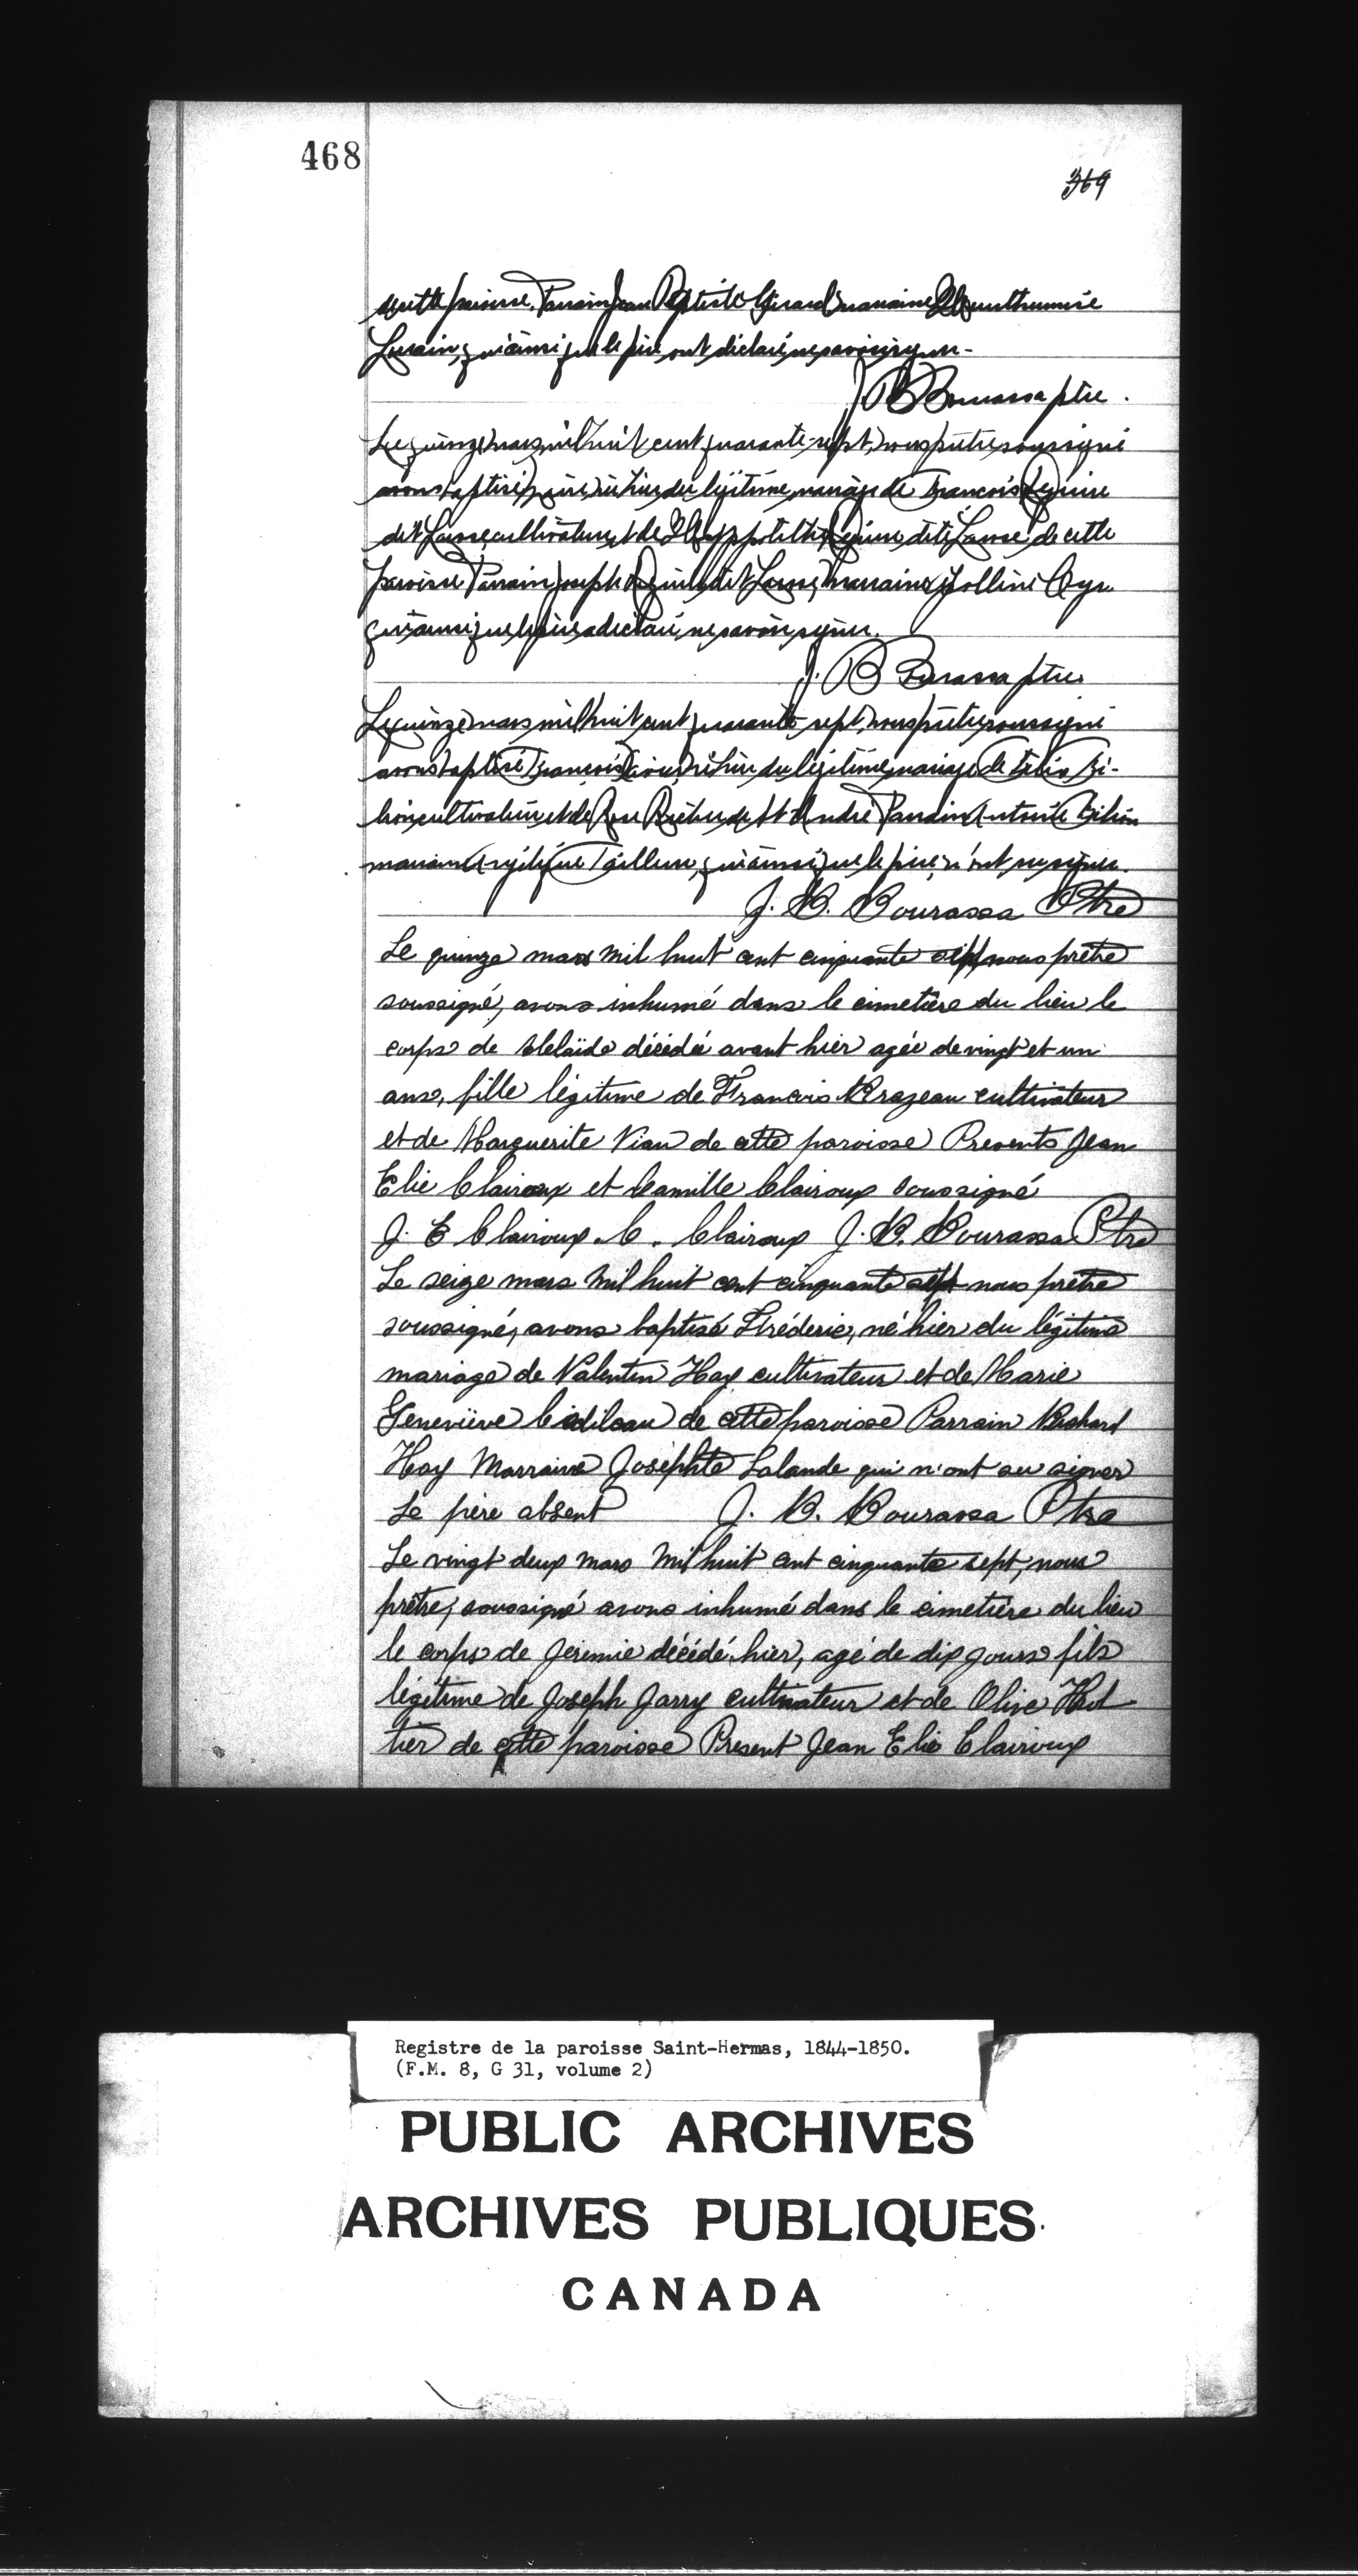 468
369
cette paroisse. Parrain Jean Baptiste Girard marraine
qui ainsi que le père ont déclaré ne savoir signer.
J B Bourassa ptre.
Le quinze mars mil huit cent quarante-sept, nous prêtre soussigné
avons baptisé né hier du légitime mariage de Francois
dit cultivateur et de dite de cette
paroisse Parrain Joseph dit marraine
qui ainsi que le père a déclaré ne savoir signer.
J. B Bourassa ptre
Le quinze mars mil huit cent quarante-sept, nous prêtre soussigné
avons baptisé François né hier du légitime mariage de
cultivateur et de Rose de St André Parrain
marraine Angélique qui ainsi que le père n'ont su signer.
J. B. Bourassa Ptre
Le quinze mars mil huit cent cinquante sept nous prêtre
soussigné, avons inhumé dans le cimetière du lieu le
corps de Adelaïde décédée avant hier agée de vingt et un
ans, fille légitime de Francois Brazeau cultivateur
et de Marguerite Viau de cette paroisse Presents Jean
Elie Clairoux et Camille Clairoux soussigné
J. E Clairoux. C. Clairoux J. B. Bourassa Ptre
Le seize mars mil huit cent cinquante sept nous prêtre
soussigné, avons baptisé Fréderic, né hier du légitime
mariage de Valentin Hay cultivateur et de Marie
Geneviève de cette paroisse Parrain Richard
Hay Marraine Josephte Lalande qui n'ont su signer
Le père absent J. B. Bourassa Ptre
Le vingt deux mars mil huit cent cinquante sept, nous
prêtre, soussigné avons inhumé dans le cimetière du lieu
le corps de Jeremie décédé hier, agé de dix jours fils
légitime de Joseph Jarry cultivateur et de Olive
de cette paroisse Present Jean Elie Clairoux
Registre de la paroisse Saint-Hermas, 1844-1850.
(F.M. 8, G 31, volume 2)
PUBLIC ARCHIVES
ARCHIVES PUBLIQUES
CANADA